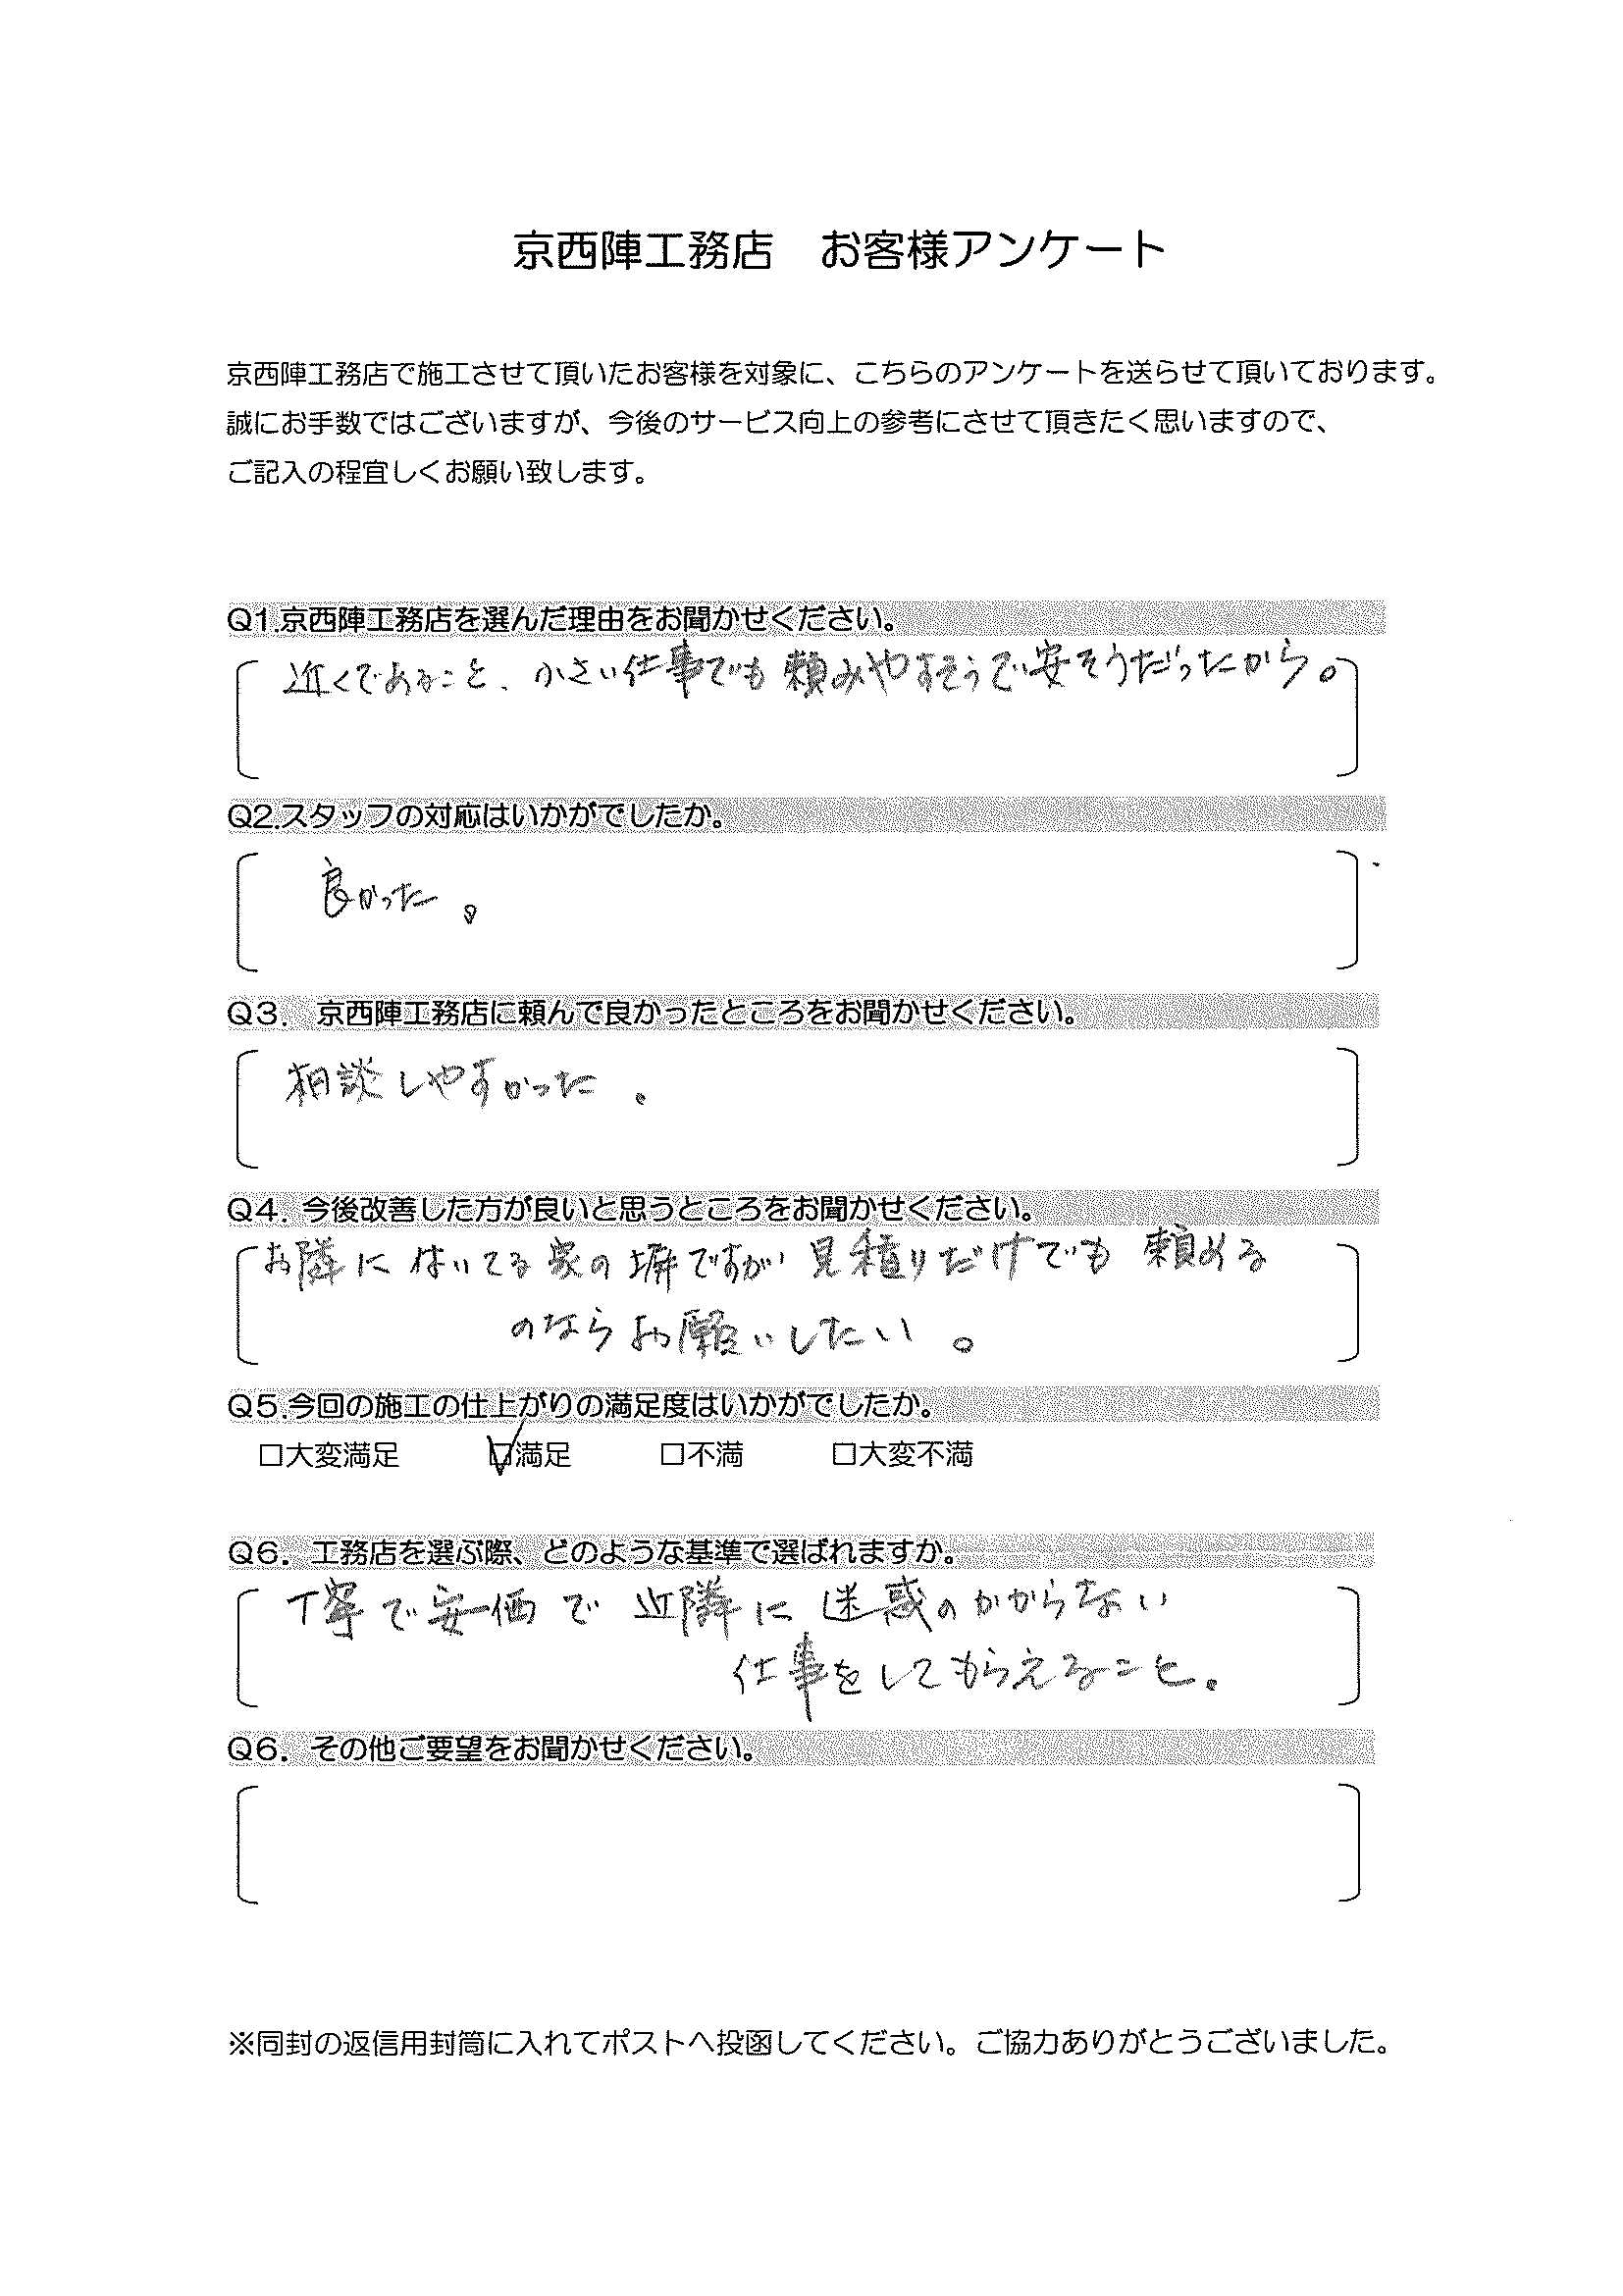 京西陣工務店　お客様アンケート
京西陣工務店で施工させて頂いたお客様を対象に、こちらのアンケートを送らせて頂いております。
誠にお手数ではございますが、今後のサービス向上の参考にさせて頂きたく思いますので、
ご記入の程宜しくお願い致します。
Q1.京西陣工務店を選んだ理由をお聞かせください。
近くであること、小さい仕事でも頼みやすそうで安そうだったから。
Q2.スタッフの対応はいかがでしたか。
良かった。
Q3. 京西陣工務店に頼んで良かったところをお聞かせください。
相談しやすかった。
Q4. 今後改善した方が良いと思うところをお聞かせください。
お隣に付いてる家の塀ですが見積りだけでも頼める
のならお願いしたい。
Q5.今回の施工の仕上がりの満足度はいかがでしたか。
□大変満足 ☑満足 □不満 □大変不満
Q6. 工務店を選ぶ際、どのような基準で選ばれますか。
丁寧で安価で近隣に迷惑のかからない
仕事をしてもらえること。
Q6. その他ご要望をお聞かせください。
※同封の返信用封筒に入れてポストへ投函してください。ご協力ありがとうございました。